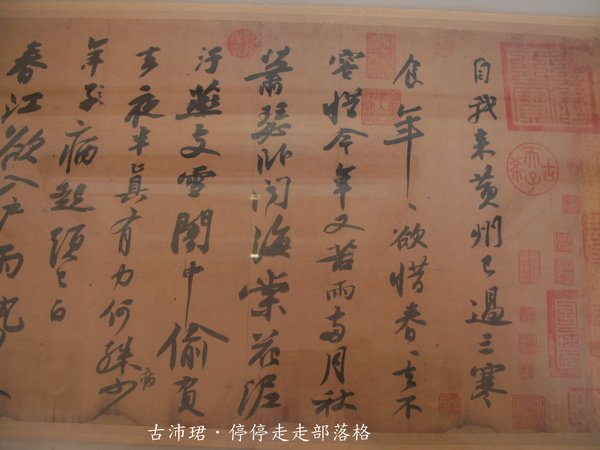 自我來黃州已過三寒
食年〻欲惜春〻去不
容惜今年又苦雨兩月秋
蕭瑟卧聞海棠花泥
汙燕支雪闇中偷負
去夜半真有力何殊病少
年子病起頭已白
春江欲入戶雨勢
古希天子
古沛珺‧停停走走部落格